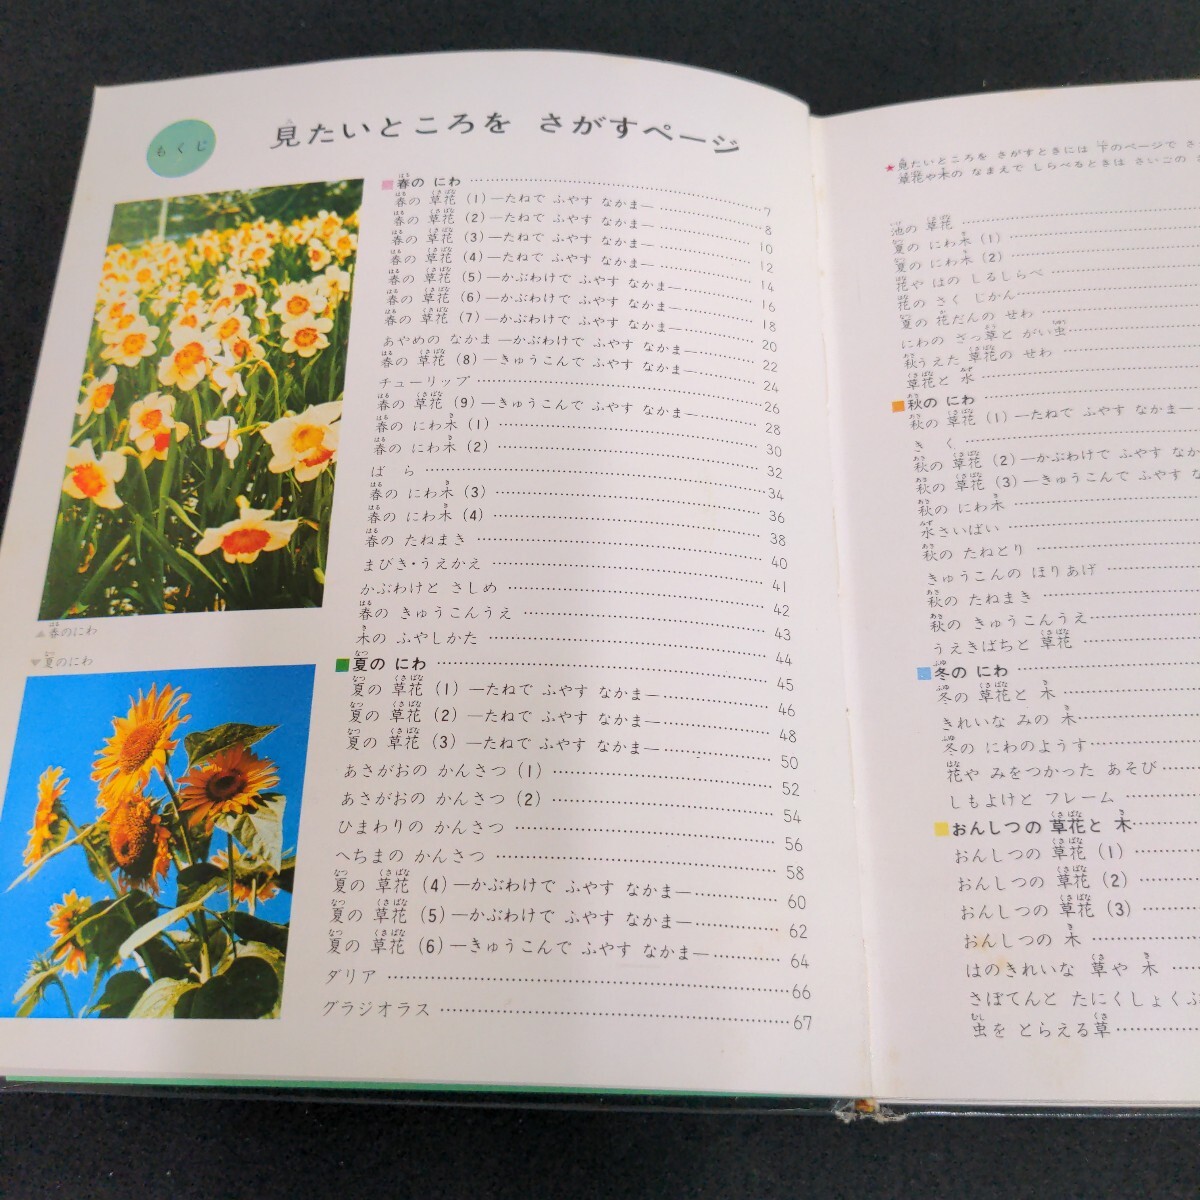 もくじ
見たいところを さがすページ
春の にわ 7
春の 草花 (1) —たねで ふやす なかま— 8
春の 草花 (2) —たねで ふやす なかま— 10
春の 草花 (3) —たねで ふやす なかま— 12
春の 草花 (4) —たねで ふやす なかま— 14
春の 草花 (5) —かぶわけで ふやす なかま— 16
春の 草花 (6) —かぶわけで ふやす なかま— 18
春の 草花 (7) —かぶわけで ふやす なかま— 20
あやめの なかま —かぶわけで ふやす なかま— 22
春の 草花 (8) —きゅうこんで ふやす なかま— 24
チューリップ 26
春の 草花 (9) —きゅうこんで ふやす なかま— 28
春の にわ木 (1) 30
春の にわ木 (2) 32
ば ら 34
春の にわ木 (3) 36
春の にわ木 (4) 38
春の たねまき 40
まびき・うえかえ 41
かぶわけと さしめ 42
春の きゅうこんうえ 43
木の ふやしかた 44
夏の にわ 45
夏の 草花 (1) —たねで ふやす なかま— 46
夏の 草花 (2) —たねで ふやす なかま— 48
夏の 草花 (3) —たねで ふやす なかま— 50
あさがおの かんさつ (1) 52
あさがおの かんさつ (2) 54
ひまわりの かんさつ 56
へちまの かんさつ 58
夏の 草花 (4) —かぶわけで ふやす なかま— 60
夏の 草花 (5) —かぶわけで ふやす なかま— 62
夏の 草花 (6) —きゅうこんで ふやす なかま— 64
ダリア 66
グラジオラス 67
▲春のにわ
▼夏のにわ
★見たいところを さがすときには 下のページで さ
草花や木の なまえで しらべるときは さいごの
池の 草花
夏の にわ木 (1)
夏の にわ木 (2)
花や はの しるしらべ
花の さく じかん
夏の 花だんの せわ
にわの ざっ草と がい虫
秋うえた 草花の せわ
草花と 水
秋の にわ
秋の 草花 (1) —たねで ふやす なかま—
き く
秋の 草花 (2) —かぶわけで ふやす なか
秋の 草花 (3) —きゅうこんで ふやす な
秋の にわ木
水さいばい
秋の たねとり
きゅうこんの ほりあげ
秋の たねまき
秋の きゅうこんうえ
うえきばちと 草花
冬の にわ
冬の 草花と 木
きれいな みの 木
冬の にわのようす
花や みをつかった あそび
しもよけと フレーム
おんしつの 草花と 木
おんしつの 草花 (1)
おんしつの 草花 (2)
おんしつの 草花 (3)
おんしつの 木
はのきれいな 草や 木
さぼてんと たにくしょくぶ
虫を とらえる草